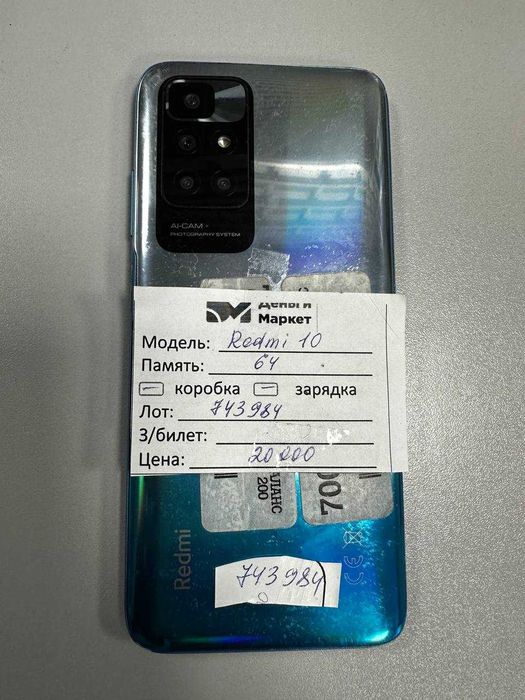 AI-CAM
PHOTOGRAPHY SYSTEM
Деньги
Маркет
Модель: Redmi 10
Память: 64
коробка зарядка
Лот: 743984
З/билет:
Цена: 20 000
200
700
Redmi
CE
743984